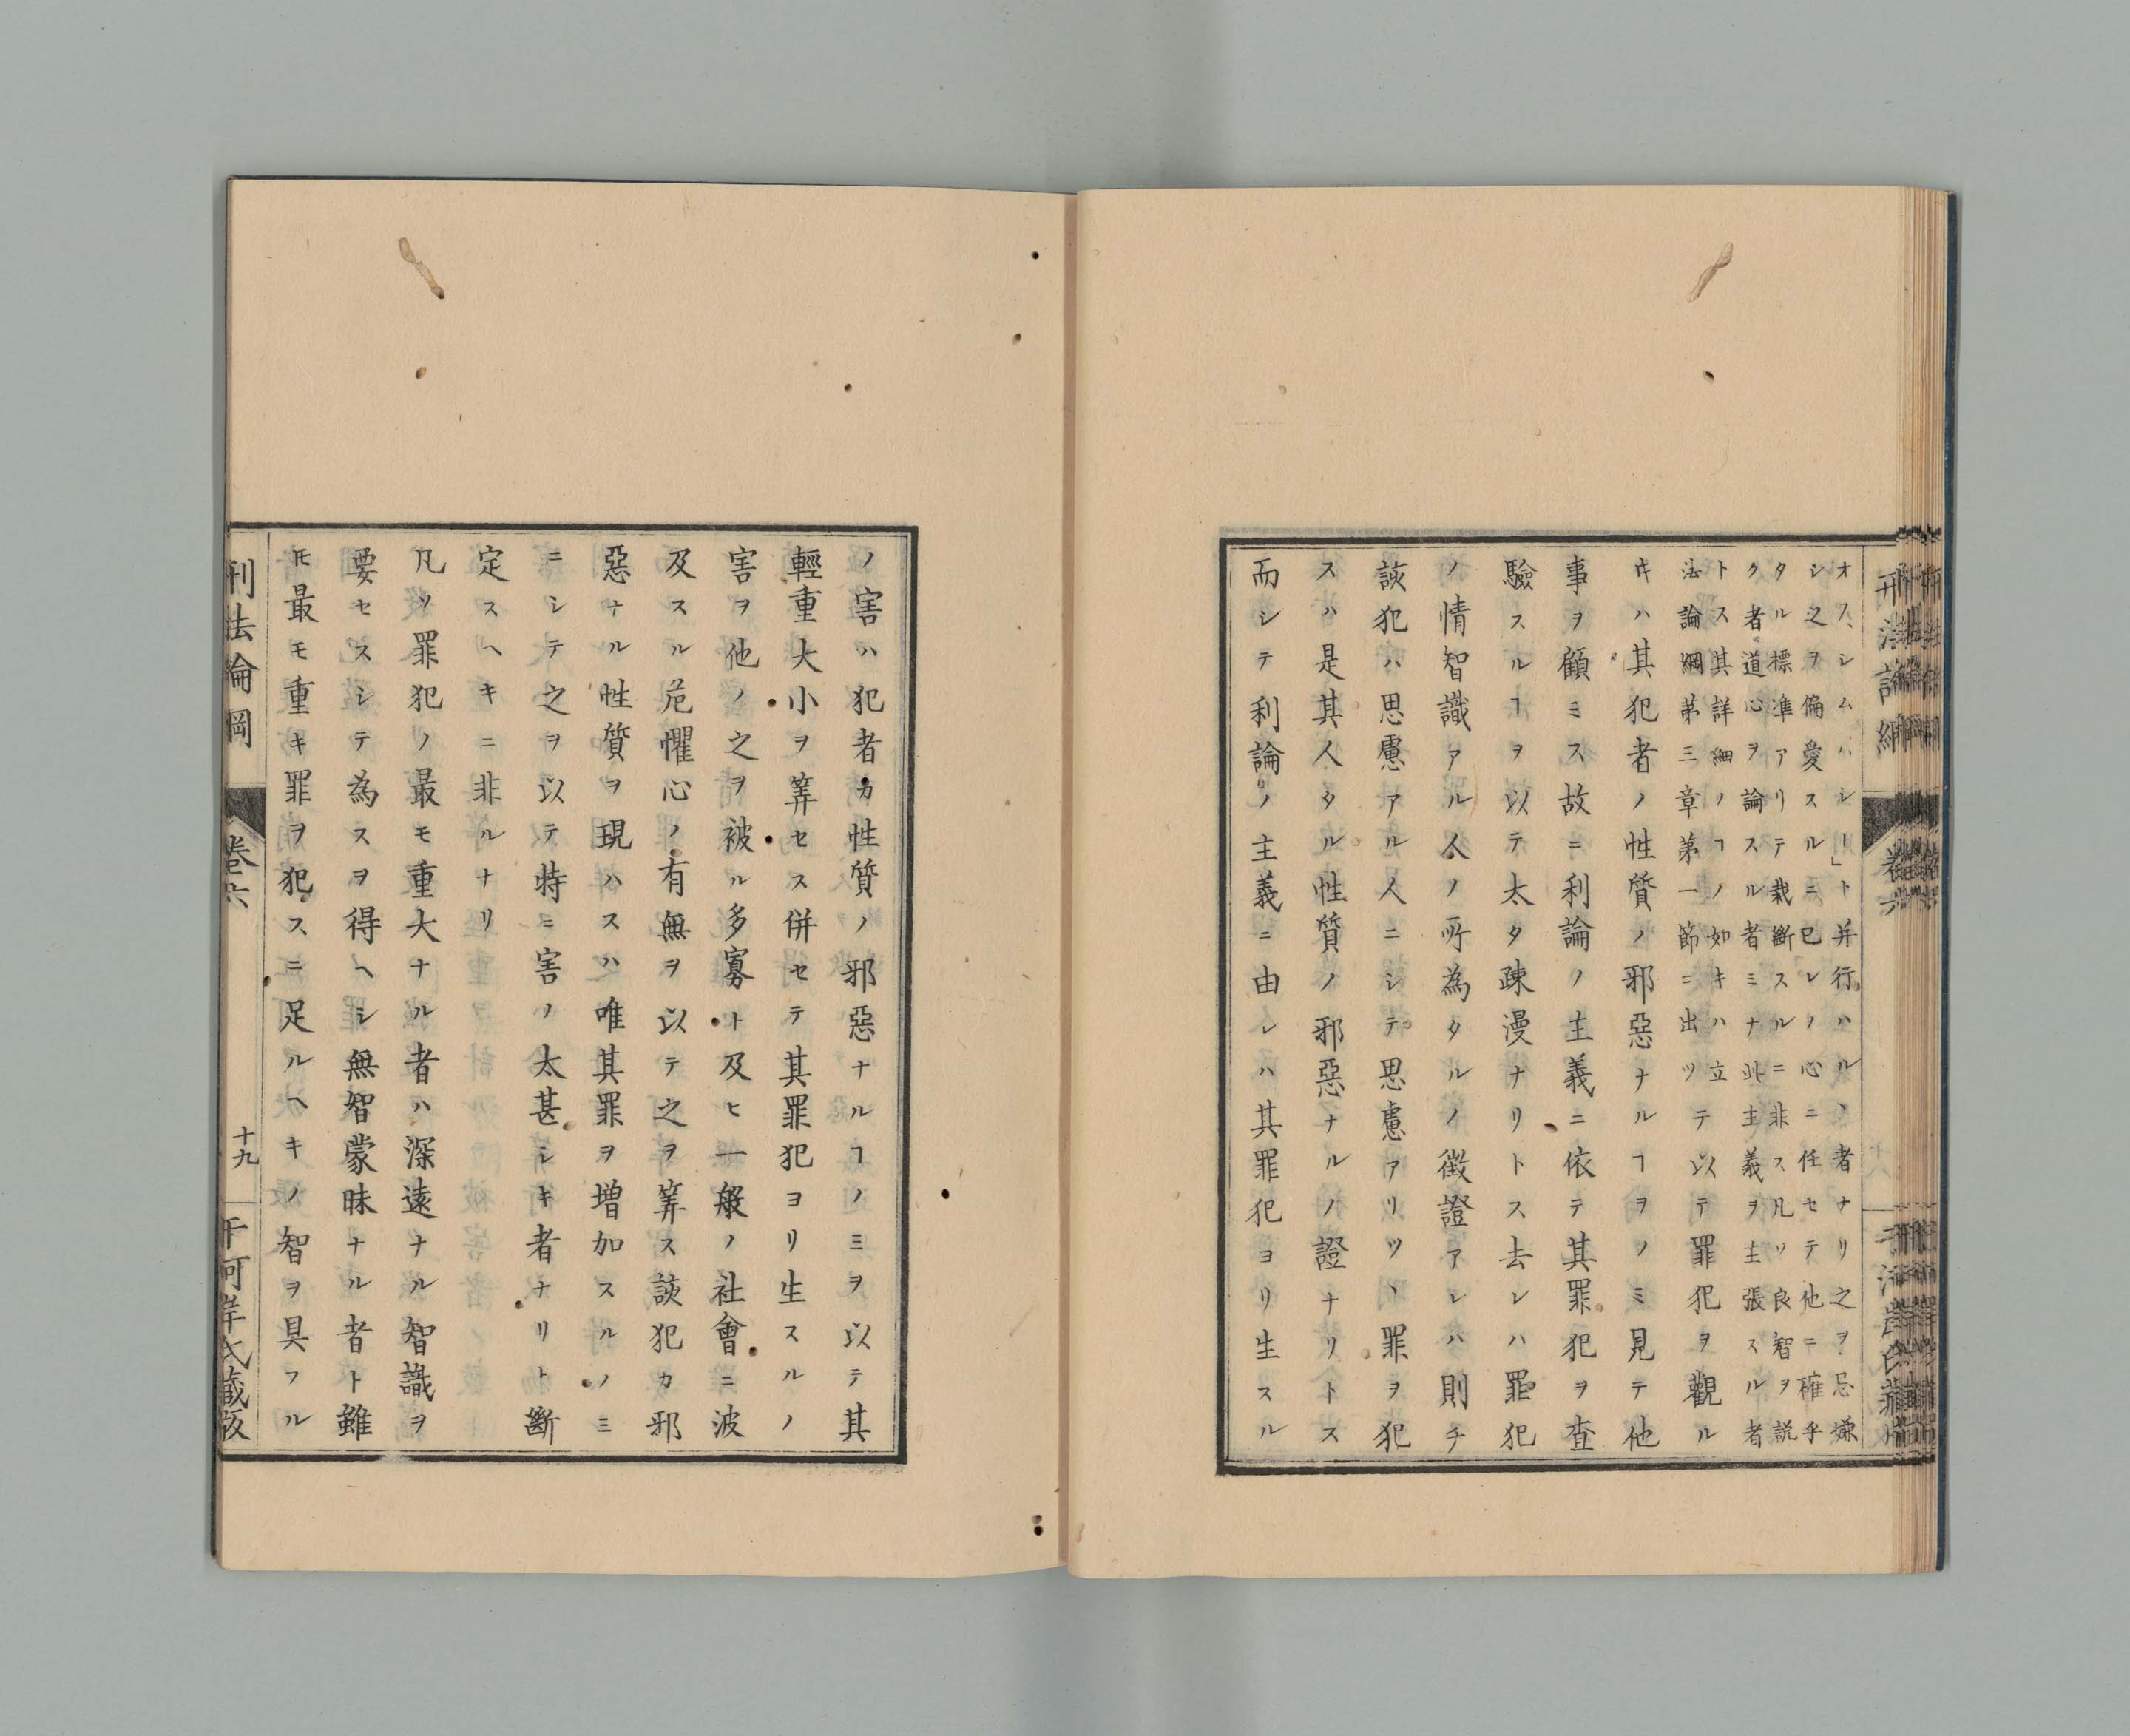 オフ丶シムハシー」ト并行ハル丶者ナリ之ヲ忌嫌
シ之ヲ偏愛スルニ已レノ心ニ任セテ他ニ確乎
タル標準アリテ裁斷スルニ非ス凡ソ良智ヲ説
ク者道心ヲ論スル者ミナ此主義ヲ主張スル者
トス其詳細ノヿノ如キハ立
法論綱第三章第一節ニ出ツ
テ以テ罪犯ヲ觀ル
ヰハ其犯者ノ性質ノ邪惡ナルヿヲノミ見テ他
事ヲ顧ミス故ニ利論ノ主義ニ依テ其罪犯ヲ査
驗スルヿヲ以テ太タ疎漫ナリトス去レハ罪犯
ノ情智識アル人ノ所為タルノ徴證アレハ則チ
該犯ハ思慮アル人ニシテ思慮アリツ丶罪ヲ犯
スハ是其人タル性質ノ邪惡ナルノ證ナリトス
而シテ利論ノ主義ニ由レハ其罪犯ヨリ生スル
ノ害ハ犯者カ性質ノ邪惡ナルヿノミヲ以テ其
輕重大小ヲ筭セス併セテ其罪犯ヨリ生スルノ
害ヲ他ノ之ヲ被ル多寡ト及ヒ一般ノ社會ニ波
及スル危懼心ノ有無ヲ以テ之ヲ筭ス該犯カ邪
惡ナル性質ヲ現ハスハ唯其罪ヲ増加スルノミ
ニシテ之ヲ以テ特ニ害ノ太甚シキ者ナリト斷
定スヘキニ非ルナリ
凡ソ罪犯ノ最モ重大ナル者ハ深遠ナル智識ヲ
要セスシテ為スヲ得ヘシ無智蒙昧ナル者ト雖
𪜈最モ重キ罪ヲ犯スニ足ルヘキノ智ヲ具フル
刑法論綱
卷六
十九